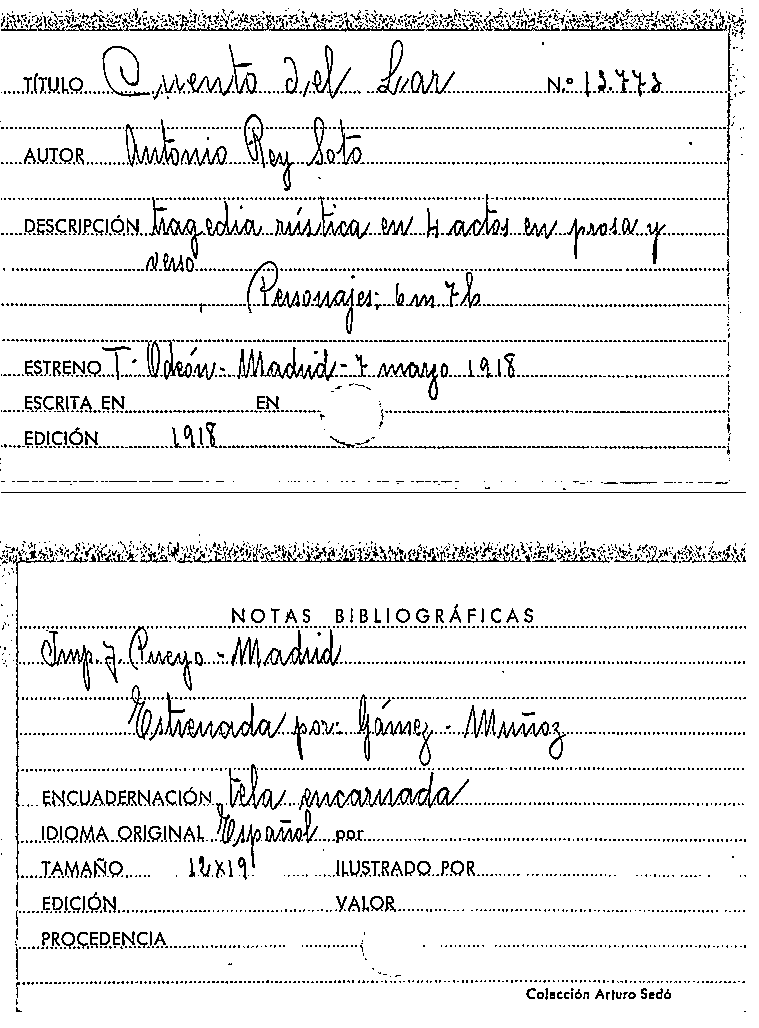 TÍTULO Cuento del Lar N.º 13.773
AUTOR Antonio Rey Soto
DESCRIPCIÓN tragedia rústica en 4 actos en prosa y
verso
Personajes: 6 m 7 h
ESTRENO T. Odeón - Madrid - 7 mayo 1918
ESCRITA EN EN
EDICIÓN 1918
NOTAS BIBLIOGRÁFICAS
Imp. J. Pueyo - Madrid
Estrenada por: Gámez - Muñoz
ENCUADERNACIÓN tela encarnada
IDIOMA ORIGINAL Español por
TAMAÑO 12x19 ILUSTRADO POR
EDICIÓN VALOR
PROCEDENCIA
Colección Arturo Sedó